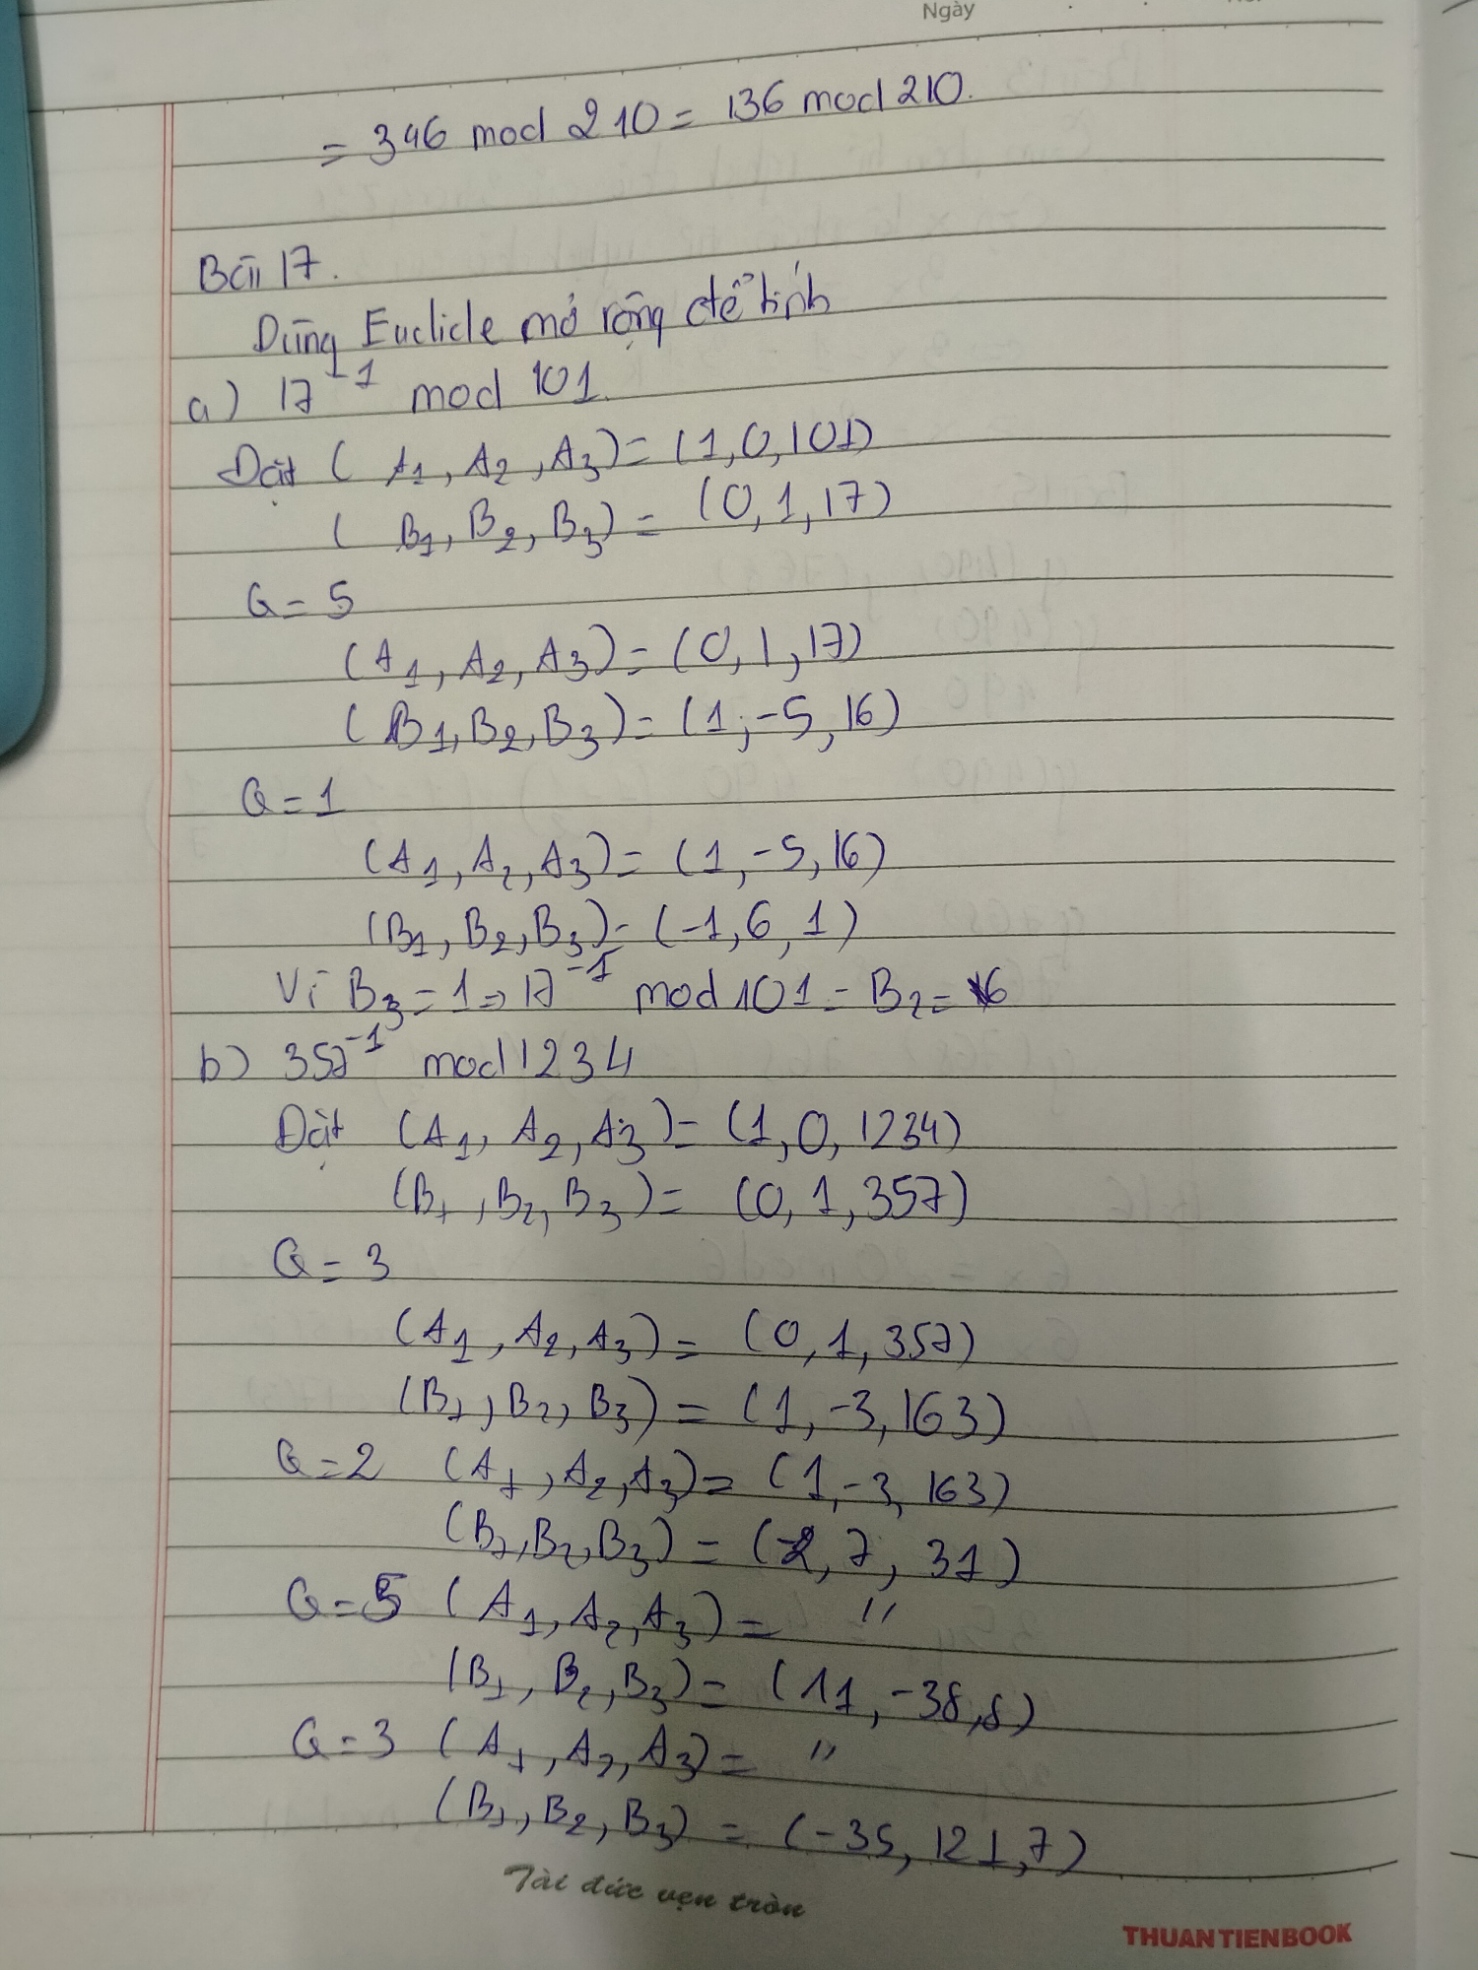 Ngày
= 346 mod 210 = 136 mod 210.
Bài 17.
Dùng Euclide mở rộng để tính
a) 17⁻¹ mod 101.
Đặt (A₁, A₂, A₃) = (1, 0, 101)
(B₁, B₂, B₃) = (0, 1, 17)
Q = 5
(A₁, A₂, A₃) = (0, 1, 17)
(B₁, B₂, B₃) = (1, -5, 16)
Q = 1
(A₁, A₂, A₃) = (1, -5, 16)
(B₁, B₂, B₃) = (-1, 6, 1)
Vì B₃ = 1 => 17⁻¹ mod 101 = B₂ = 6
b) 357⁻¹ mod 1234
Đặt (A₁, A₂, A₃) = (1, 0, 1234)
(B₁, B₂, B₃) = (0, 1, 357)
Q = 3
(A₁, A₂, A₃) = (0, 1, 357)
(B₁, B₂, B₃) = (1, -3, 163)
Q = 2 (A₁, A₂, A₃) = (1, -3, 163)
(B₁, B₂, B₃) = (-2, 7, 31)
Q = 5 (A₁, A₂, A₃) = "
(B₁, B₂, B₃) = (11, -38, 8)
Q = 3 (A₁, A₂, A₃) = "
(B₁, B₂, B₃) = (-35, 121, 7)
Tài đức vẹn tròn
THUANTIENBOOK